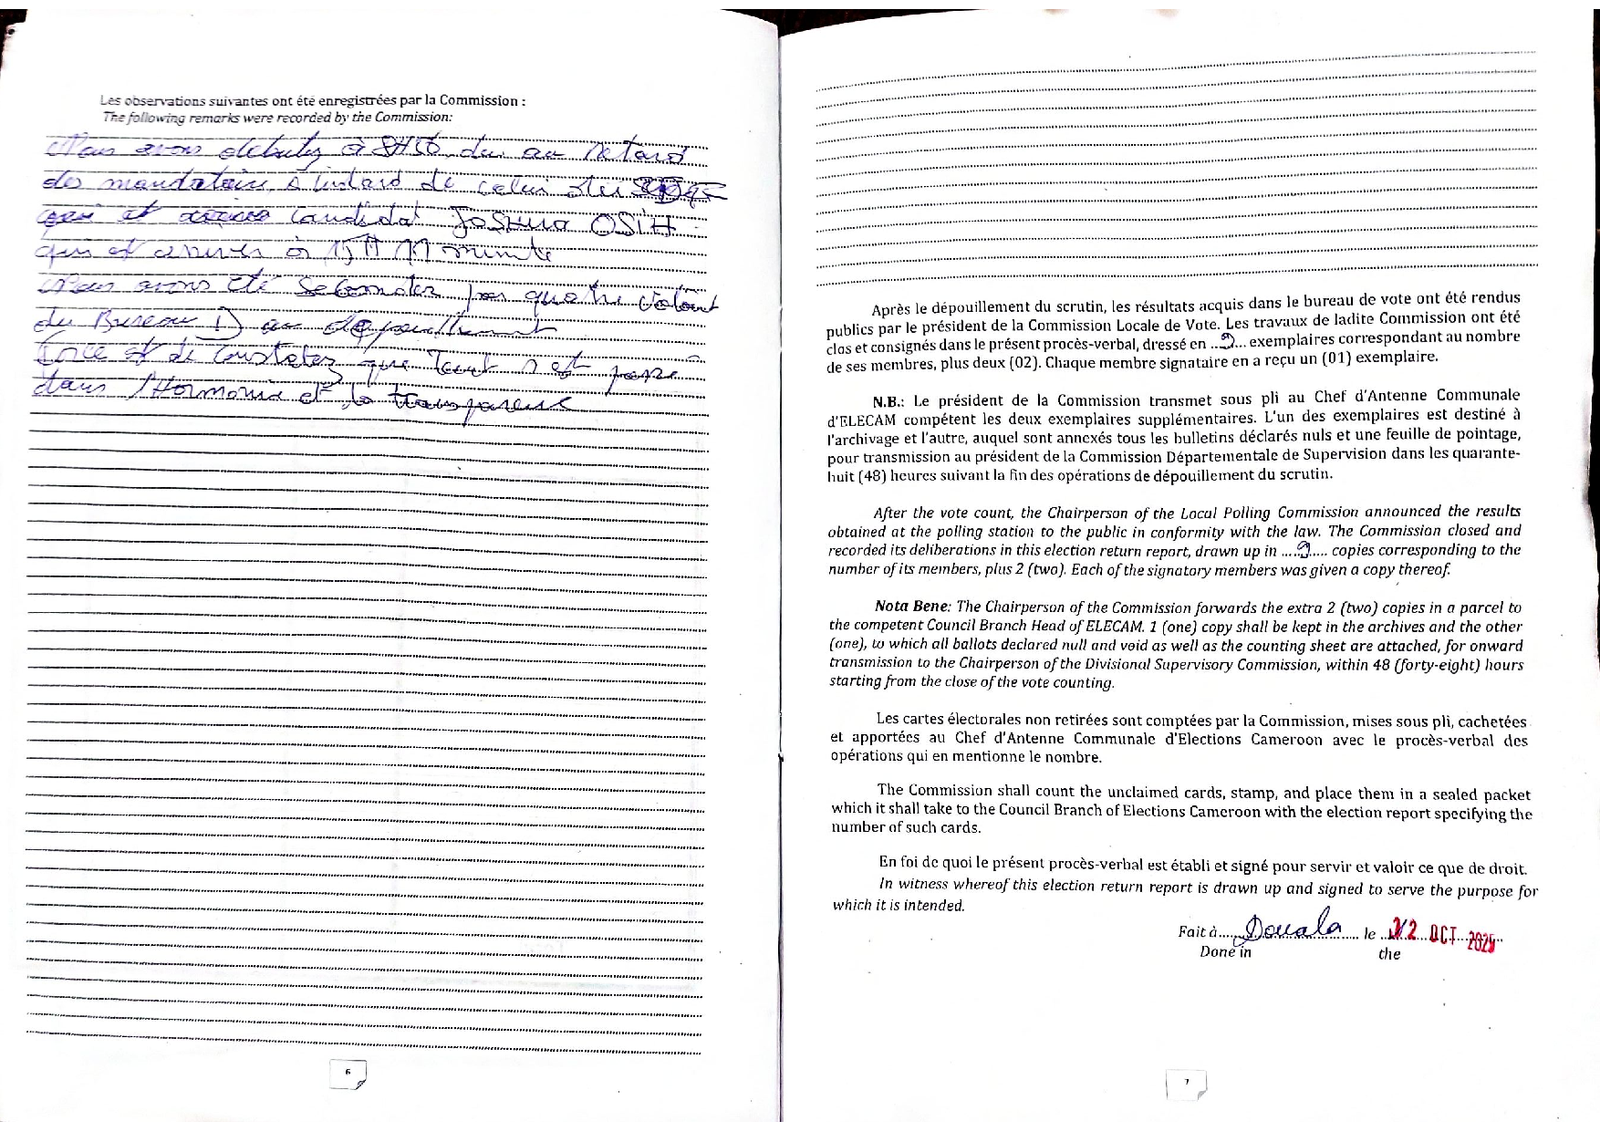 Les observations suivantes ont été enregistrées par la Commission :
The following remarks were recorded by the Commission:
Nous avons débutez à du au retard
des mandataire à l'instard de celui du
candidat Joshua OSIH
qui et arriver à 15H 11 minute
Nous avons été secondez par quatre
du Bureau D au depouillement
Force et de constatez que tout s'est passé
dans l'Harmonie et la transparence
6
Après le dépouillement du scrutin, les résultats acquis dans le bureau de vote ont été rendus
publics par le président de la Commission Locale de Vote. Les travaux de ladite Commission ont été
clos et consignés dans le présent procès-verbal, dressé en ..9... exemplaires correspondant au nombre
de ses membres, plus deux (02). Chaque membre signataire en a reçu un (01) exemplaire.
N.B.: Le président de la Commission transmet sous pli au Chef d'Antenne Communale
d'ELECAM compétent les deux exemplaires supplémentaires. L'un des exemplaires est destiné à
l'archivage et l'autre, auquel sont annexés tous les bulletins déclarés nuls et une feuille de pointage,
pour transmission au président de la Commission Départementale de Supervision dans les quarante-
huit (48) heures suivant la fin des opérations de dépouillement du scrutin.
After the vote count, the Chairperson of the Local Polling Commission announced the results
obtained at the polling station to the public in conformity with the law. The Commission closed and
recorded its deliberations in this election return report, drawn up in ....9.... copies corresponding to the
number of its members, plus 2 (two). Each of the signatory members was given a copy thereof.
Nota Bene: The Chairperson of the Commission forwards the extra 2 (two) copies in a parcel to
the competent Council Branch Head of ELECAM. 1 (one) copy shall be kept in the archives and the other
(one), to which all ballots declared null and void as well as the counting sheet are attached, for onward
transmission to the Chairperson of the Divisional Supervisory Commission, within 48 (forty-eight) hours
starting from the close of the vote counting.
Les cartes électorales non retirées sont comptées par la Commission, mises sous pli, cachetées
et apportées au Chef d'Antenne Communale d'Elections Cameroon avec le procès-verbal des
opérations qui en mentionne le nombre.
The Commission shall count the unclaimed cards, stamp, and place them in a sealed packet
which it shall take to the Council Branch of Elections Cameroon with the election report specifying the
number of such cards.
En foi de quoi le présent procès-verbal est établi et signé pour servir et valoir ce que de droit.
In witness whereof this election return report is drawn up and signed to serve the purpose for
which it is intended.
Fait à Douala le 12 OCT 2025
Done in the
7